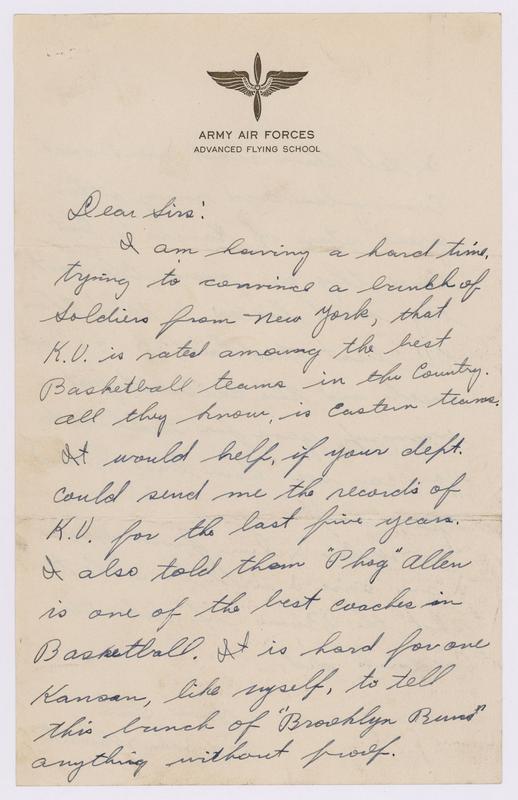 ARMY AIR FORCES
ADVANCED FLYING SCHOOL
Dear Sirs:
I am having a hard time,
trying to convince a bunch of
Soldiers from New York, that
K.U. is rated amoung the best
Basketball teams in the Country.
all they know, is Eastern teams.
It would help, if your dept.
could send me the records of
K.U. for the last five years.
I also told them "Phog" Allen
is one of the best coaches in
Basketball. It is hard for one
Kansan, like myself, to tell
this bunch of "Brooklyn Bums"
anything without proof.